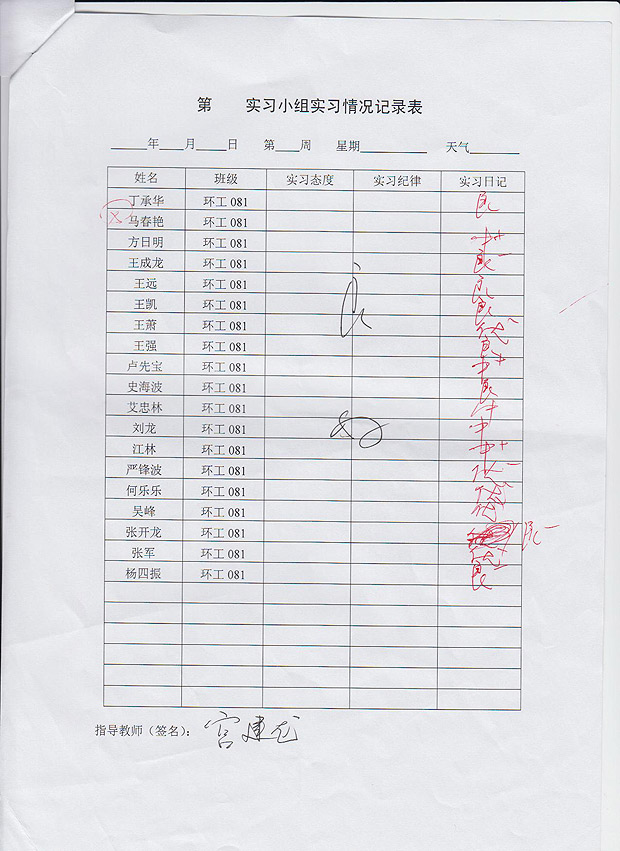 第 实习小组实习情况记录表
年 月 日 第 周 星期 天气
姓名 班级 实习态度 实习纪律 实习日记
丁承华 环工081 良
马春艳 环工081
方日明 环工081 中+
王成龙 环工081 良-
王远 环工081 良
王凯 环工081 良
王萧 环工081
王强 环工081
卢先宝 环工081 中+
史海波 环工081 良
艾忠林 环工081 中
刘龙 环工081 中
江林 环工081 中+
严锋波 环工081
何乐乐 环工081
吴峰 环工081
张开龙 环工081 良-
张军 环工081
杨四振 环工081 良
良
好
指导教师（签名）： 宫建龙